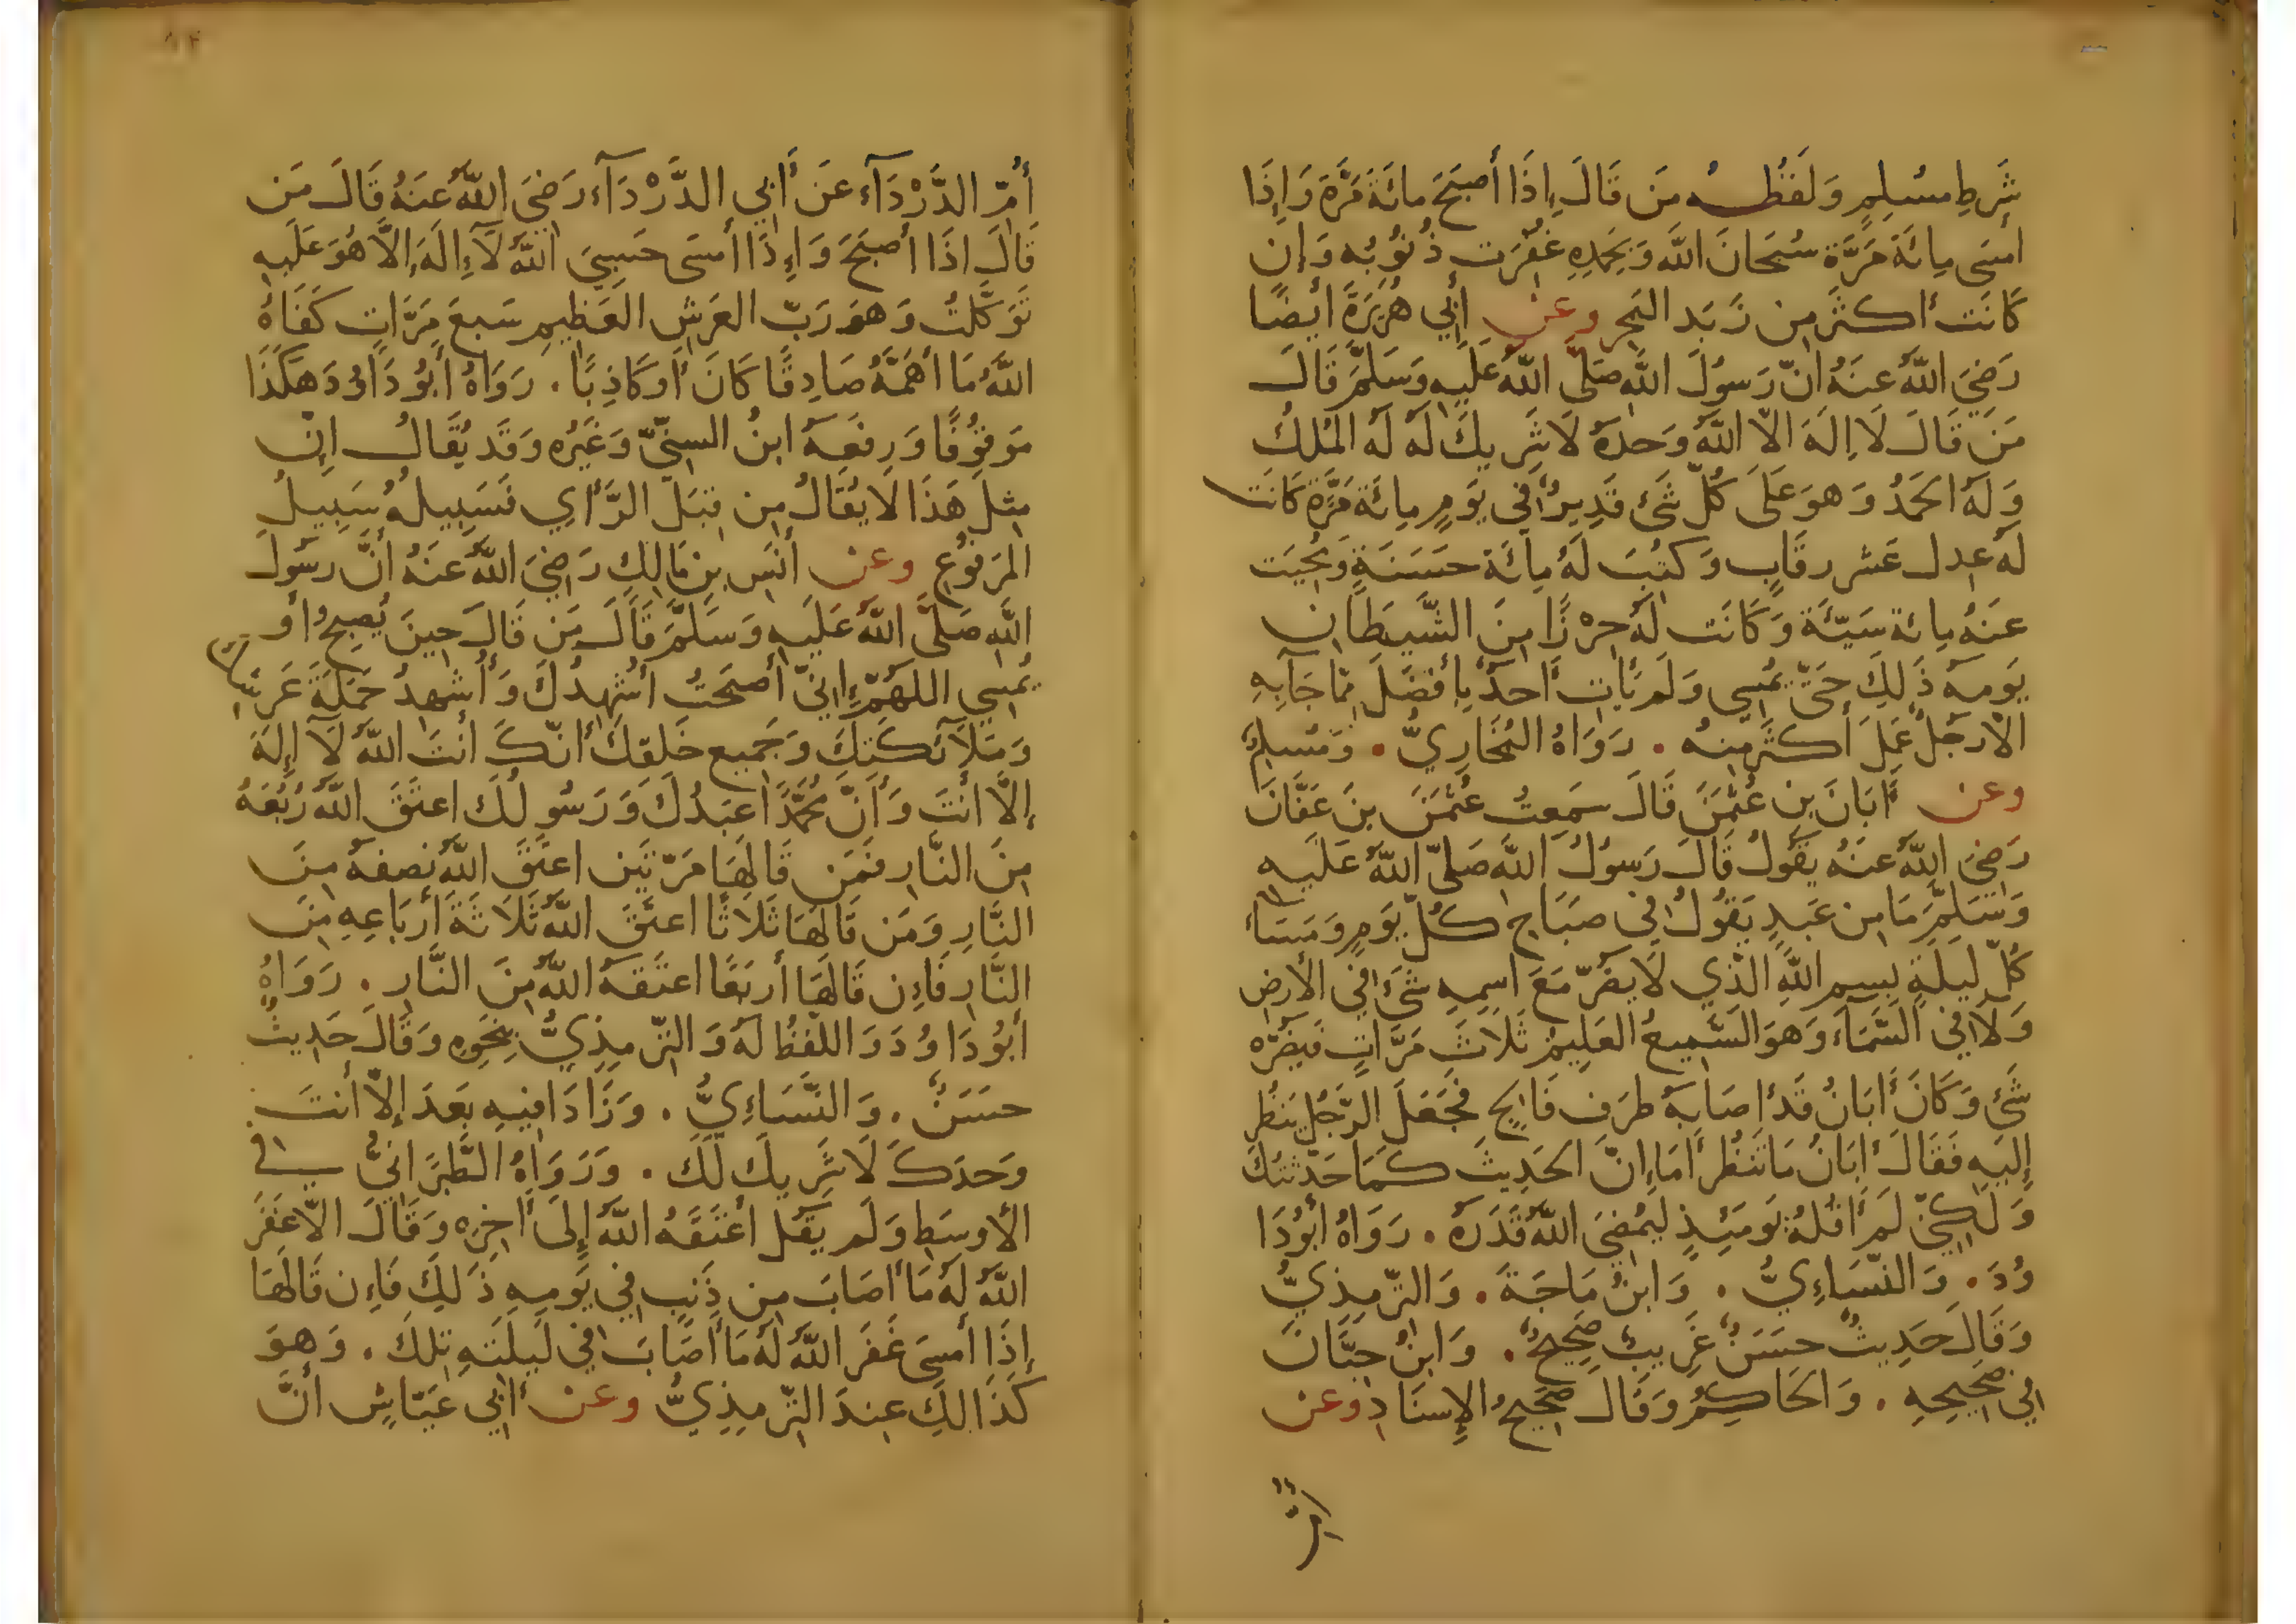 شَرطِ مسُلِمٍ وَلَفظُـهُ مَن قَالَ إِذَا أَصبَحَ مائَةَ مَرَّة وَإِذَا
أمسَى مِائَةَ مَرَّة سُبحَانَ اللهَ وَبِحَمدِهِ غُفِرَت ذُنُوبُه وَإن
كَانَت أكثَر مِن زَبَد البَحرِ وعن أَبِي هُرَيرَةَ أيضًا
رَضِيَ اللهُ عنَهُ انّ رَسوُلَ اللهِ صَلّى اللهُ عَلَيهِ وَسَلّمَ قَالَ
مَن قَالَ لَا اِلَهَ الّا اللهُ وَحدَهُ لَا شَرِيكَ لَهُ لَهُ المُلكُ
وَلَهُ الحَمدُ وَهوَ عَلَى كُلّ شَئ قَدِيرٌ في يَومٍ مِائَةَ مَرَّة كَانَت
لَهُ عِدل عَشر رقَابٍ وَكتُبَ لَهُ مِائَة حَسَنَةٍ وَمُحِيَت
عنَهُ مِائة سَيّئَة وَكَانَت لَهُ حِرْزًا مِنَ الشَّيطَان
يَومَهُ ذَلِكَ حَتّى يُمسِي وَلَم يَأت أحدٌ بِأفضَلَ مِمّا جَآبِهِ
الّا رَجُلٌ عَمِلَ أكثَرَ مِنهُ . رَوَاهُ البُخَارِيُّ . وَمُسلِمٌ
وعن أَبَانَ بن عُثمَنَ قَالَ سَمِعتُ عُثمَنَ بنَ عَفَّانَ
رَضِيَ اللهُ عنَهُ يقَوُلُ قَالَ رَسوُلُ اللهِ صَلّى اللهُ عَلَيهِ
وَسَلّمَ مَا مِن عَبدٍ يَقوُلُ في صَبَاحِ كُلّ يَومٍ وَمَسَاءِ
كُلّ لَيلَةٍ بِسمِ اللهِ الذّي لَا يَضُرّ مَعَ اسمِهِ شَئ في الأرضِ
وَلَا في السَّمَاءِ وَهوَ السَّمِيعُ العَلِيمُ ثَلَاثَ مَرَّاتٍ فَيضُرّه
شَئ وَكَانَ أَبَانُ قَد أصَابَهُ طرَف فَالِجٍ فَجَعَلَ الرَّجُل يَنظُر
إليَهِ فَقَالَ أبَانُ مَا تَنظُر أمَا إنَّ الحَدِيثَ كَمَا حَدّثتُكَ
وَلَكِنّي لَم أقُلهُ يَومَئِذٍ لِيُمضِيَ اللهُ قَدَرَهُ . رَوَاهُ أبُودَا
وُدَ . وَالنّسَاءِيُّ . وَابنُ مَاجَةَ . وَالتّرمِذِيُّ
وَقَالَ حَدِيثٌ حسَنٌ غَرِيبٌ صَحِيحٌ . وَابنُ حِبَّانَ
في صَحِيحِهِ . وَالحَاكِمُ وَقَالَ صَحِيحُ الإسنَادِ وعن
أُمّ الدَّرْدَآءِ عَن أَبِي الدَّرْدَآءِ رَضِيَ اللهُ عَنهُ قَالَ مَن
قَالَ اذَا أصبَحَ وَإِذَا أمسَى حَسبِيَ اللهُ لَآ إلَهَ إلَّا هُوَ عَلَيهِ
تَوَكَّلتُ وَهوَ رَبّ العَرشِ العَظِيمِ سَبعَ مَرَّاتٍ كَفَاهُ
اللهُ مَا أهَمَّهُ صَادِقًا كَانَ أَو كَاذِبًا . رَوَاهُ أَبُو دَاوُدَ هَكَذَا
مَوقوُفًا وَرفَعهُ ابنُ السنِّيّ وَغَيرُه وَقَد يُقَالُ إنّ
مِثلَ هَذَا لَا يُقَالُ مِن قِبَلَ الرَّأيِ فَسَبِيلُهُ سَبِيلُ
المَرفُوعِ وعن أنَسِ بنِ مَالِكِ رَضِيَ اللهُ عنَهُ أنَّ رسوُلَ
اللهِ صَلّى اللهُ عَلَيهِ وَسَلّمَ قَالَ مَن قَالَ حِينَ يُصبِحُ أَو
يُمسِي اللهُمّ إنيّ أصبَحتُ أشهِدُكَ وَأشهِدُ حَمَلَةَ عَرشِكَ
وَمَلَآئكَتِكَ وَجَمِيع خَلقِكَ أنّكَ أنتَ اللهُ لَآ إلَهَ
إلَّا أنتَ وَأنّ مُحَمَّدًا عَبدُكَ وَرَسُولُكَ اعتَقَ اللهُ رُبُعَهُ
مِنَ النّارِ فمَن قَالَهَا مَرّتَين اعتَقَ اللهُ نِصفهُ مِنَ
النَّارِ وَمَن قَالَهَا ثَلَاثًا اعتَقَ اللهُ ثَلَاثَةَ أربَاعِهِ مِنَ
النَّارِ فَإن قَالَهَا أربَعًا اعتَقهُ اللهُ مِنَ النَّارِ . رَوَاهُ
أبُودَاوُدَ وَاللّفظُ لَهُ وَالتّرمِذِيُّ بِنَحوِهِ وَقَالَ حَدِيثٌ
حسَنٌ . وَالنَّسَاءِيُّ . وَزَادَ فِيهِ بَعدَ إلّا أنتَ
وَحدَكَ لَا شَرِيكَ لَكَ . وَرَوَاهُ الطَّبَرَانيُّ في
الأوسَطِ وَلَم يَقُل أعتَقَهُ اللهُ إلَى أخِرِه وَقَالَ الّا غَفَرَ
اللهُ لَهُ مَا أصَابَ مِن ذَنبٍ فِي يَومِهِ ذَلِكَ فَإن قَالَهَا
إذَا أمسَى غَفَرَ اللهُ لَهُ مَا أصَابَ في لَيلَتهِ تِلكَ . وَهوَ
كَذَالِكَ عِندَ التّرمِذِيُّ وعن أَبِي عَيّاشٍ أنَّ